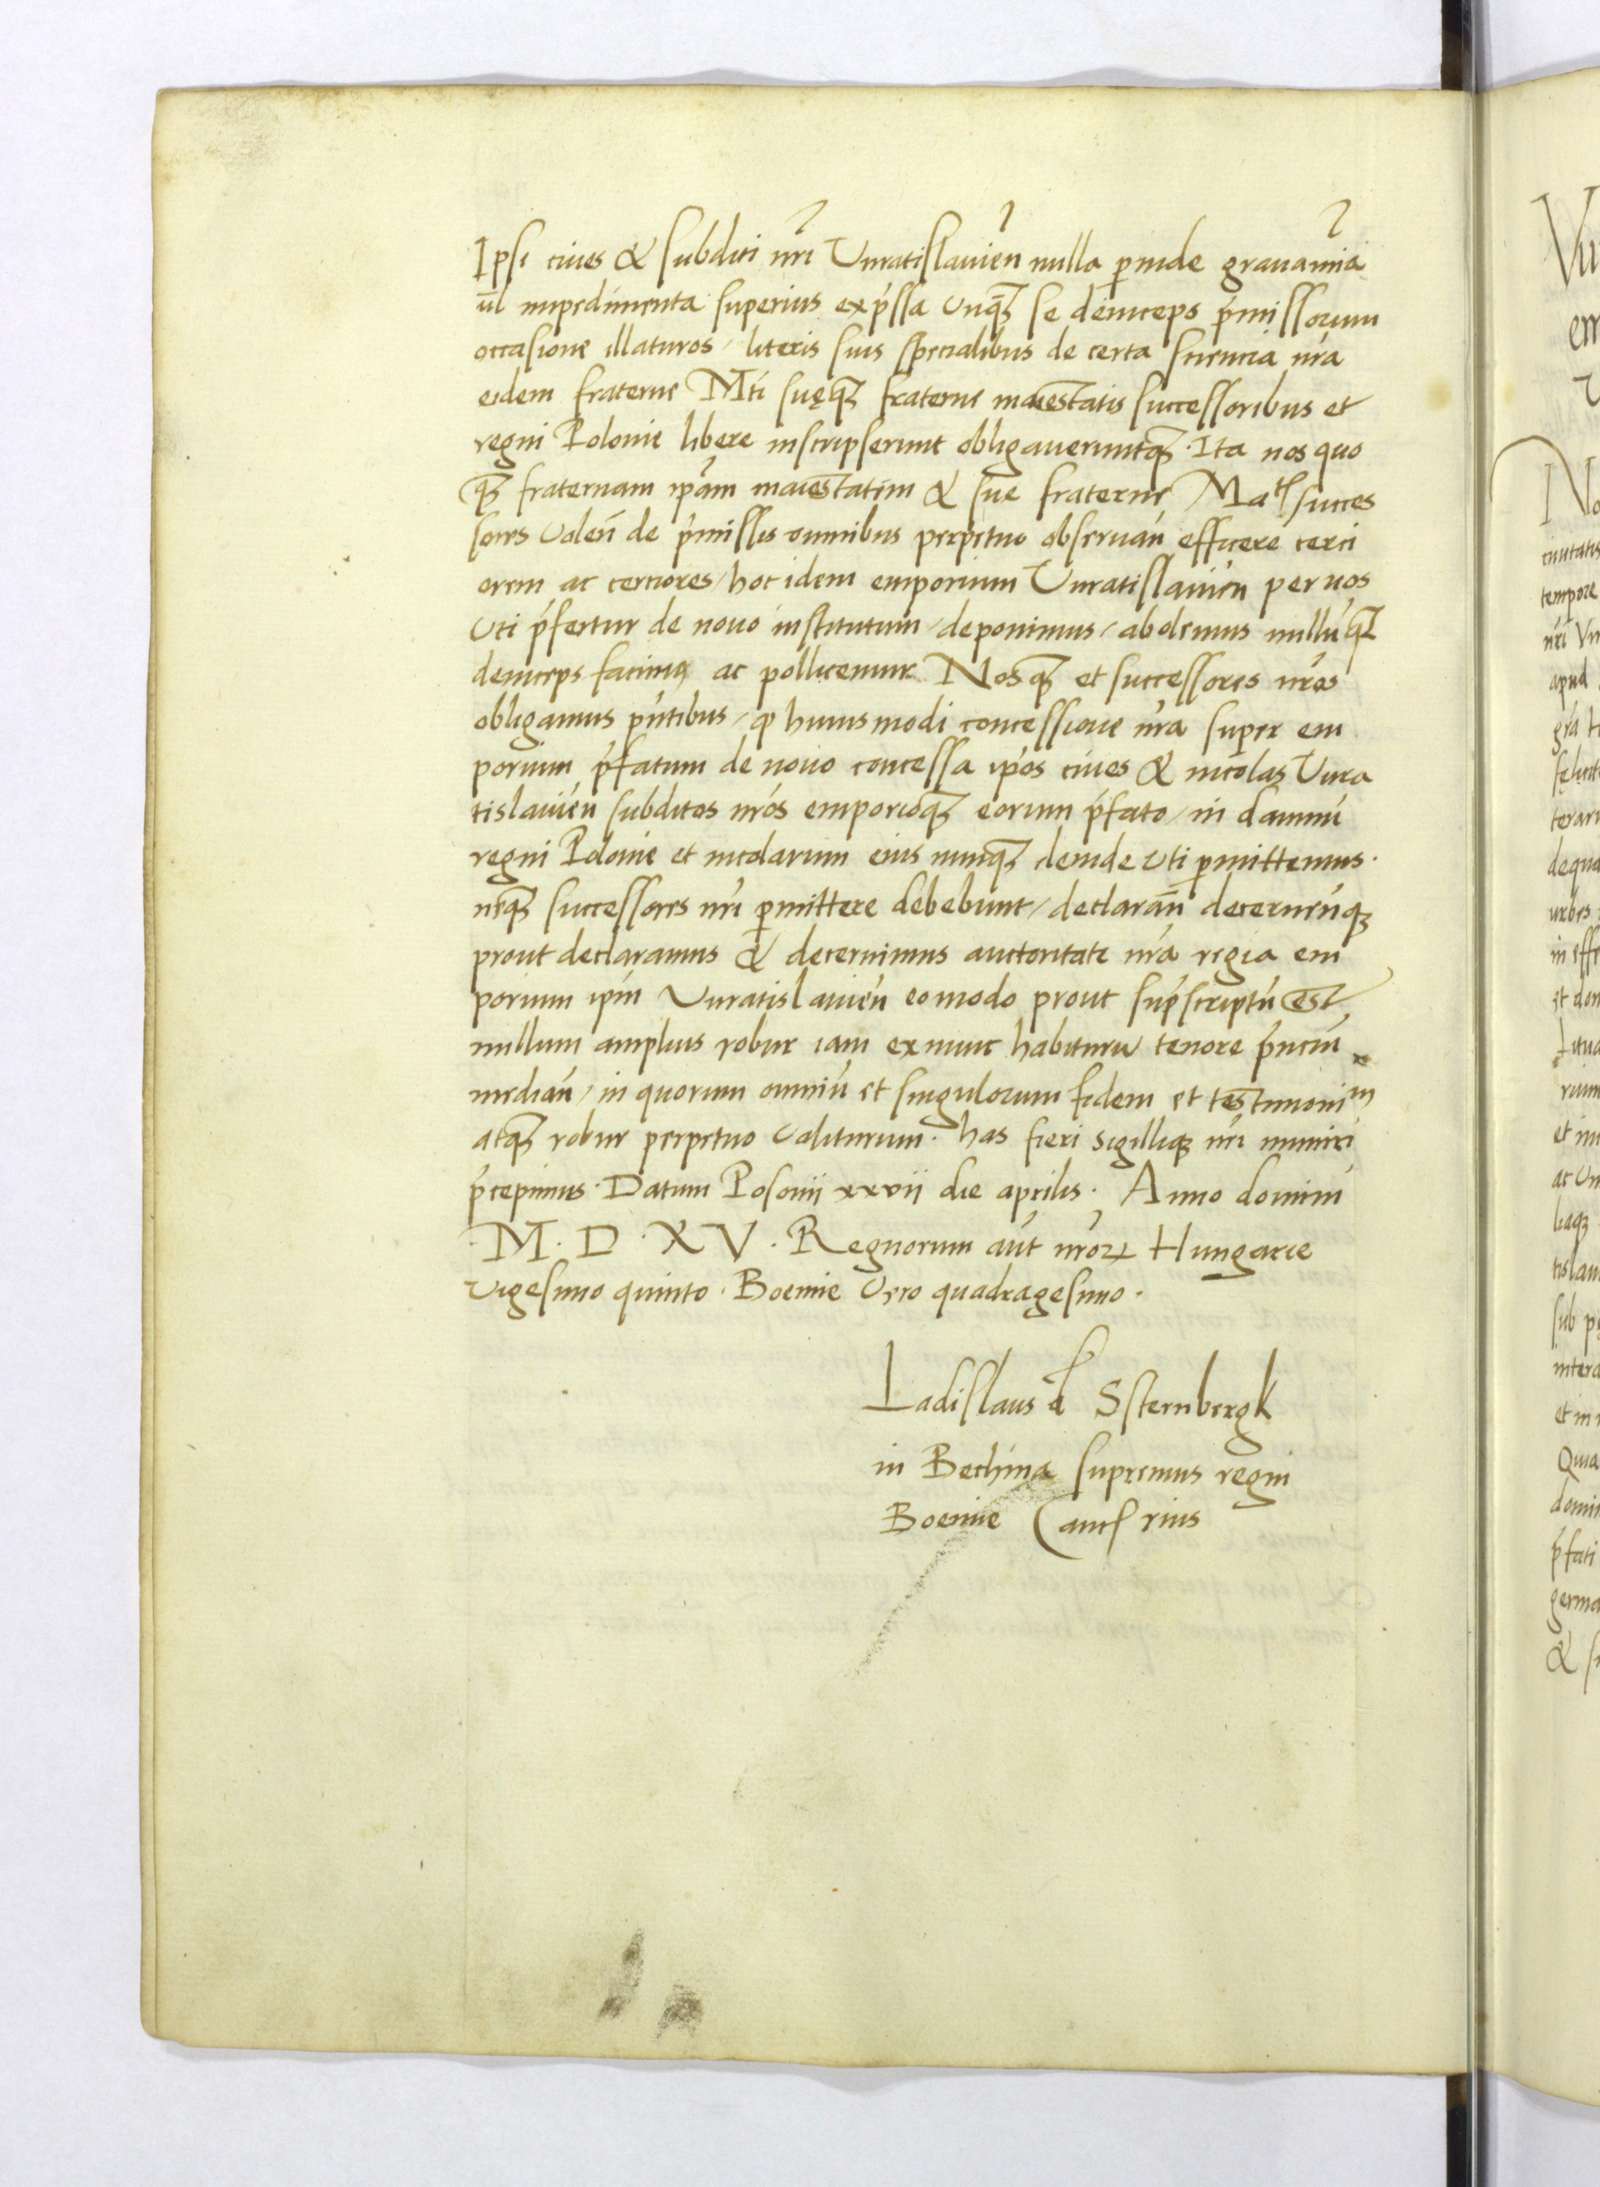 Ipsi ciues & subditi nr̄i Vuratislauień nulla p̱inde grauamia
ūl impedimenta superius exp̄ssa vnq̄ȝ se deinceps p̄missorum
occasione illaturos / literis suis specialibus de certa sciencia nr̄a
eidem fraterne Mt̄i suęq̄ȝ fraterne maiestatis successoribus et
regni Polonie libere inscripserunt obligaueruntq̄ȝ · Ita nos quo
q̄ȝ fraternam ip̄am maiestatem & sue fraterne Matis succes
sores volen̄ de p̄missis omnibus perpetuo obseruan̄ efficere cerci
orem ac cerciores / hoc idem emporium Vuratislauień per nos
vti p̄fertur de nouo institutum / deponimus / abolemus nullūq̄ȝ
deinceps facimꝰ ac pollicemur Nosq̄ȝ et successores nr̄os
obligamus p̄ntibus / ꝙ huiusmodi concessione nr̄a super em
porium p̄fatum de nouo concessa ip̄os ciues & incolas Vura
tislauień subditos nr̄os emporioq̄ȝ eorum p̄fato / in damnū
regni Polonie et incolarum eius nunq̄ȝ deinde vti p̱mittemus ·
neq̄ȝ successores nr̄i p̱mittere debebunt / declaran̄ decernenq̄ȝ
prout declaramus & decernimus auctoritate nr̄a regia em
porium ip̄m Vuratislauień eo modo prout sup̄scriptū est
nullum amplius robur iam ex nunc habiturū tenore p̄nciū
median̄ / in quorum omniū et singulorum fidem et testimonim
atq̄ȝ robur perpetuo valiturum · has fieri sigilliqȝ nr̄i muniri
p̄cepimus · Datum Posonii xxvii die aprilis · Anno domini
· M · D · X V · Regnorum aūt nr̄oꝝ Hungarie
vigesimo quinto · Boemie vero quadragesimo ·
Ladislaus d Ssternbergk
in Bechina supremus regni
Boemie Cancl rius